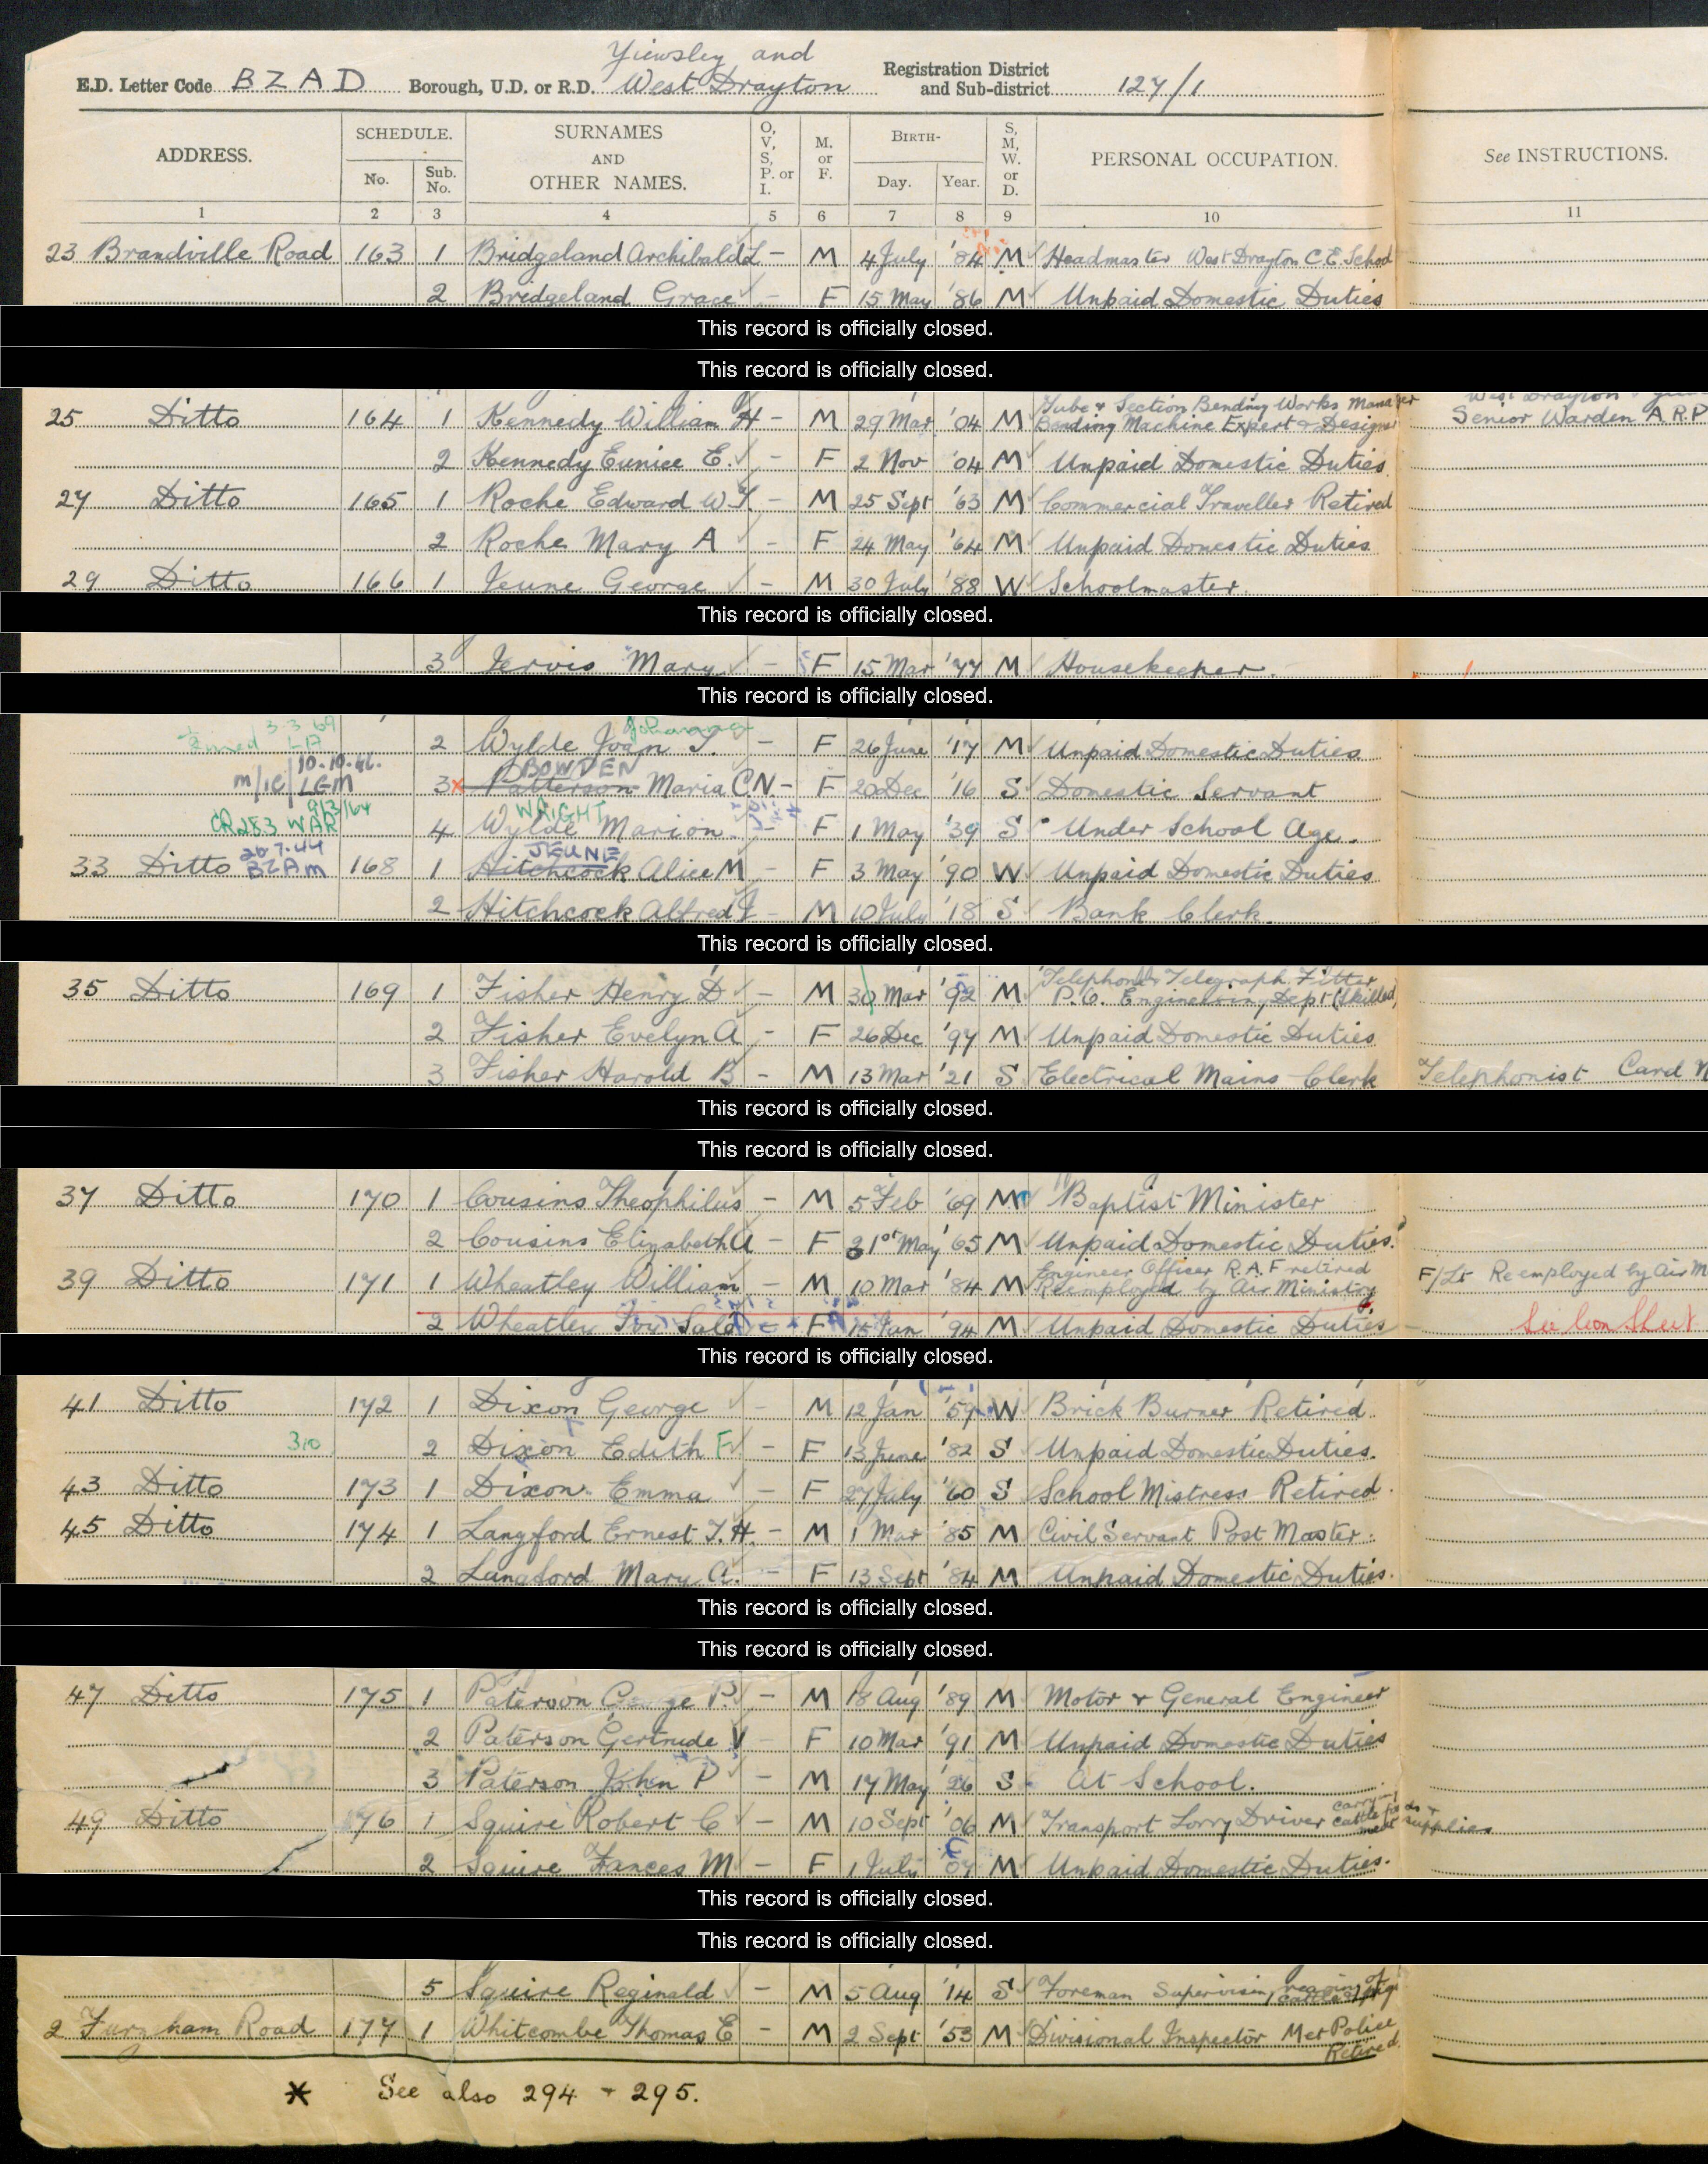 Yiewsley and
E.D. Letter Code BZAD Borough, U.D. or R.D. West Drayton Registration District and Sub-district 127/1
ADDRESS. SCHEDULE. No. Sub. No. SURNAMES AND OTHER NAMES. O, V, S, P. or I. M. or F. BIRTH- Day. Year. S, M, W. or D. PERSONAL OCCUPATION. See INSTRUCTIONS.
1 2 3 4 5 6 7 8 9 10 11
23 Brandville Road 163 1 Bridgeland Archibald L - M 4 July '84 M Headmaster West Drayton C.E. School
2 Bridgeland Grace - F 15 May '86 M Unpaid Domestic Duties
This record is officially closed.
This record is officially closed.
Tube & Section Bending Works Manager West Drayton
25 Ditto 164 1 Kennedy William H - M 29 Mar '04 M Bending Machine Expert & Designer Senior Warden A.R.P
2 Kennedy Eunice E. - F 2 Nov '04 M Unpaid Domestic Duties
27 Ditto 165 1 Roche Edward W.T. - M 25 Sept '63 M Commercial Traveller Retired
2 Roche Mary A - F 24 May '64 M Unpaid Domestic Duties
29 Ditto 166 1 Jeune George - M 30 July '88 W Schoolmaster.
This record is officially closed.
3 Jervis Mary - F 15 Mar '77 M Housekeeper.
This record is officially closed.
3.3.69 Johanna
LA 2 Wylde Joan T. - F 26 June '17 M Unpaid Domestic Duties
10.10.41. BOWDEN
m/ic/ LGM 3x Patterson Maria C.N. - F 20 Dec '16 S Domestic Servant
9/3/64 WRIGHT
CR283 WAR 4 Wylde Marion - F 1 May '39 S Under School Age.
26.7.44 JEUNE
33 Ditto BZAM 168 1 Hitchcock Alice M - F 3 May '90 W Unpaid Domestic Duties
2 Hitchcock Alfred J - M 10 July '18 S Bank Clerk.
This record is officially closed.
Telephone & Telegraph Fitter
35 Ditto 169 1 Fisher Henry D - M 30 Mar '92 M P.O. Engineering Dept (Skilled)
2 Fisher Evelyn A - F 26 Dec '97 M Unpaid Domestic Duties
3 Fisher Harold B - M 13 Mar '21 S Electrical Mains Clerk Telephonist Card N
This record is officially closed.
This record is officially closed.
37 Ditto 170 1 Cousins Theophilus - M 5 Feb '69 M Baptist Minister
2 Cousins Elizabeth A - F 31st May '65 M Unpaid Domestic Duties.
Engineer Officer R.A.F retired
39 Ditto 171 1 Wheatley William - M 10 Mar '84 M Reemployed by Air Ministry F/Lt Reemployed by Air M
2 Wheatley Ivy - F 15 Jan '94 M Unpaid Domestic Duties See Con Sheet
This record is officially closed.
41 Ditto 172 1 Dixon George - M 12 Jan '59 W Brick Burner Retired.
310 2 Dixon Edith F - F 13 June '82 S Unpaid Domestic Duties.
43 Ditto 173 1 Dixon Emma - F 27 July '60 S School Mistress Retired.
45 Ditto 174 1 Langford Ernest T.H. - M 1 Mar '85 M Civil Servant Post Master.
2 Langford Mary A. - F 13 Sept '84 M Unpaid Domestic Duties.
This record is officially closed.
This record is officially closed.
47 Ditto 175 1 Paterson George P. - M 18 Aug '89 M Motor & General Engineer
2 Paterson Gertrude V - F 10 Mar '91 M Unpaid Domestic Duties
3 Paterson John P - M 17 May '26 S At School.
49 Ditto 176 1 Squire Robert C - M 10 Sept '06 M Transport Lorry Driver carrying cattle foods & meat supplies
2 Squire Frances M - F 1 July '07 M Unpaid Domestic Duties.
This record is officially closed.
This record is officially closed.
5 Squire Reginald - M 5 Aug '14 S Foreman Supervising
2 Furnham Road 177 1 Whitcombe Thomas E - M 2 Sept '53 M Divisional Inspector Met Police Retired.
* See also 294 + 295.